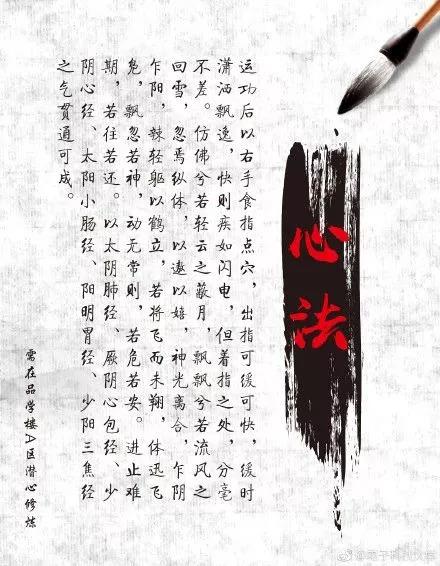 心法
运功后以右手食指点穴，出指可缓可快，缓时
潇洒飘逸，快则疾如闪电，但着指之处，分毫
不差。仿佛兮若轻云之蔽月，飘飘兮若流风之
回雪，忽焉纵体，以遨以嬉，神光离合，乍阴
乍阳，辣轻躯以鹤立，若将飞而未翔，体迅飞
凫，飘忽若神，动无常则，若危若安。进止难
期，若往若还。以太阴肺经、厥阴心包经、少
阴心经、太阳小肠经、阳明胃经、少阳三焦经
之气贯通可成。
需在品学楼A区潜心修炼